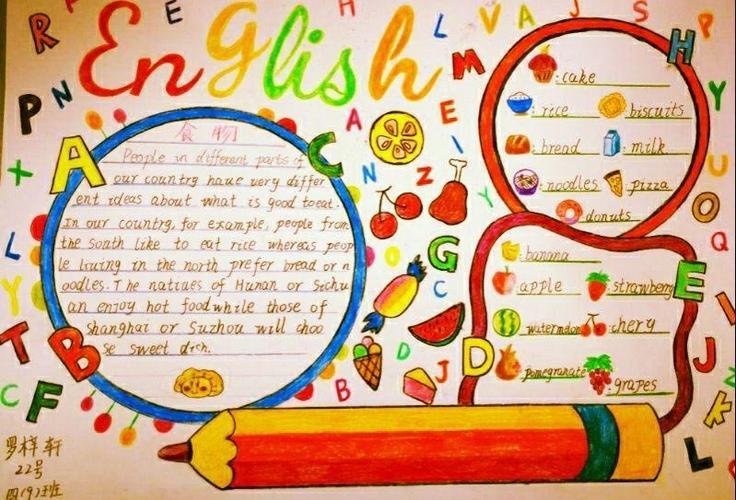 English
食物
People in different parts of
our country have very differ
ent ideas about what is good to eat.
In our country, for example, people from
the south like to eat rice whereas peop
le living in the north prefer bread or n
oodles. The natives of Hunan or Sichu
an enjoy hot food while those of
Shanghai or Suzhou will choo
se sweet dich.
cake
rice
biscuits
bread
milk
noodles
pizza
donuts
banana
apple
strawberry
watermelon
chery
pomegranate
grapes
22号
四(9)班
A
B
C
D
E
F
G
H